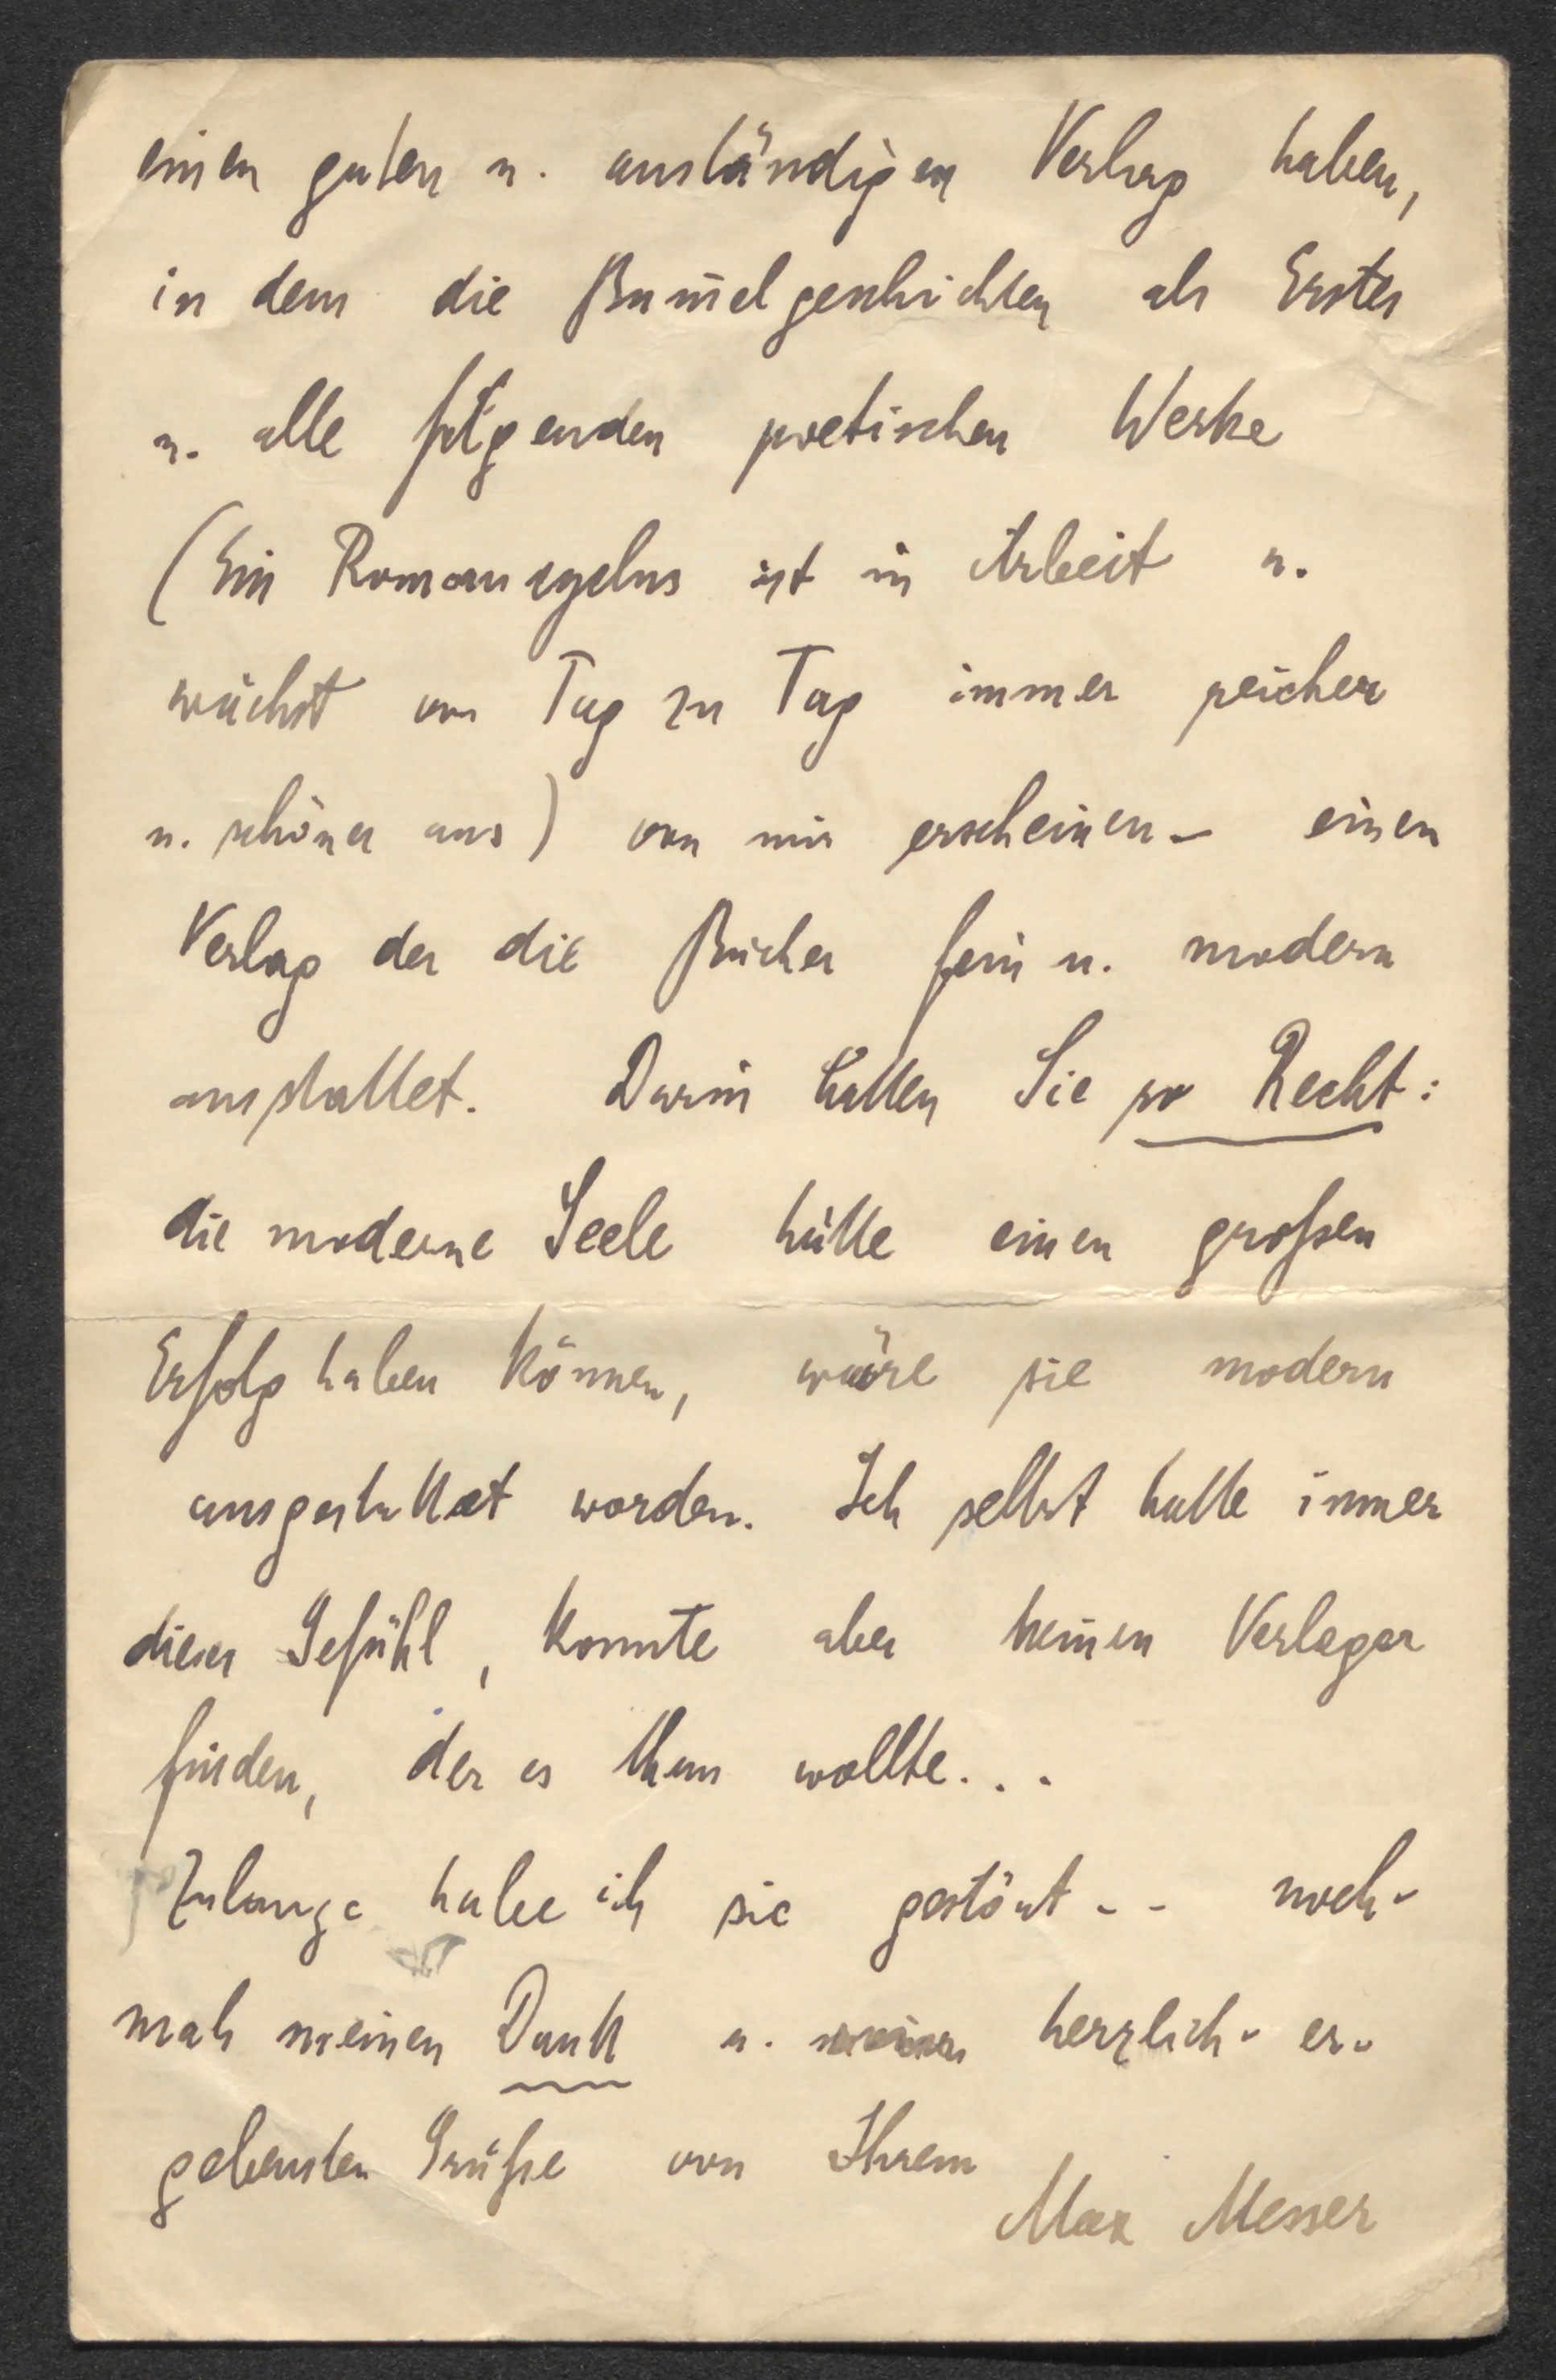 einen guten u. anständigen Verlag haben,
in dem die Bum̄elgeschichten als Erstes
u. alle folgenden poetischen Werke
(Ein Romancyclus ist in Arbeit u.
wächst von Tag zu Tag immer reicher
u. schöner aus) von mir erscheinen – einen
Verlag der die Bücher fein u. modern
ausstattet. Darin hatten Sie so Recht:
die moderne Seele hätte einen großen
Erfolg haben können, wäre sie modern
ausgestattet worden. Ich selbst hatte immer
dieses Gefühl, konnte aber keinen Verleger
finden, der es thun wollte...
Zulange habe ich sie gestört - - noch-
mals meinen Dank u. herzlich- er-
gebensten Grüße von Ihrem
Max Messer